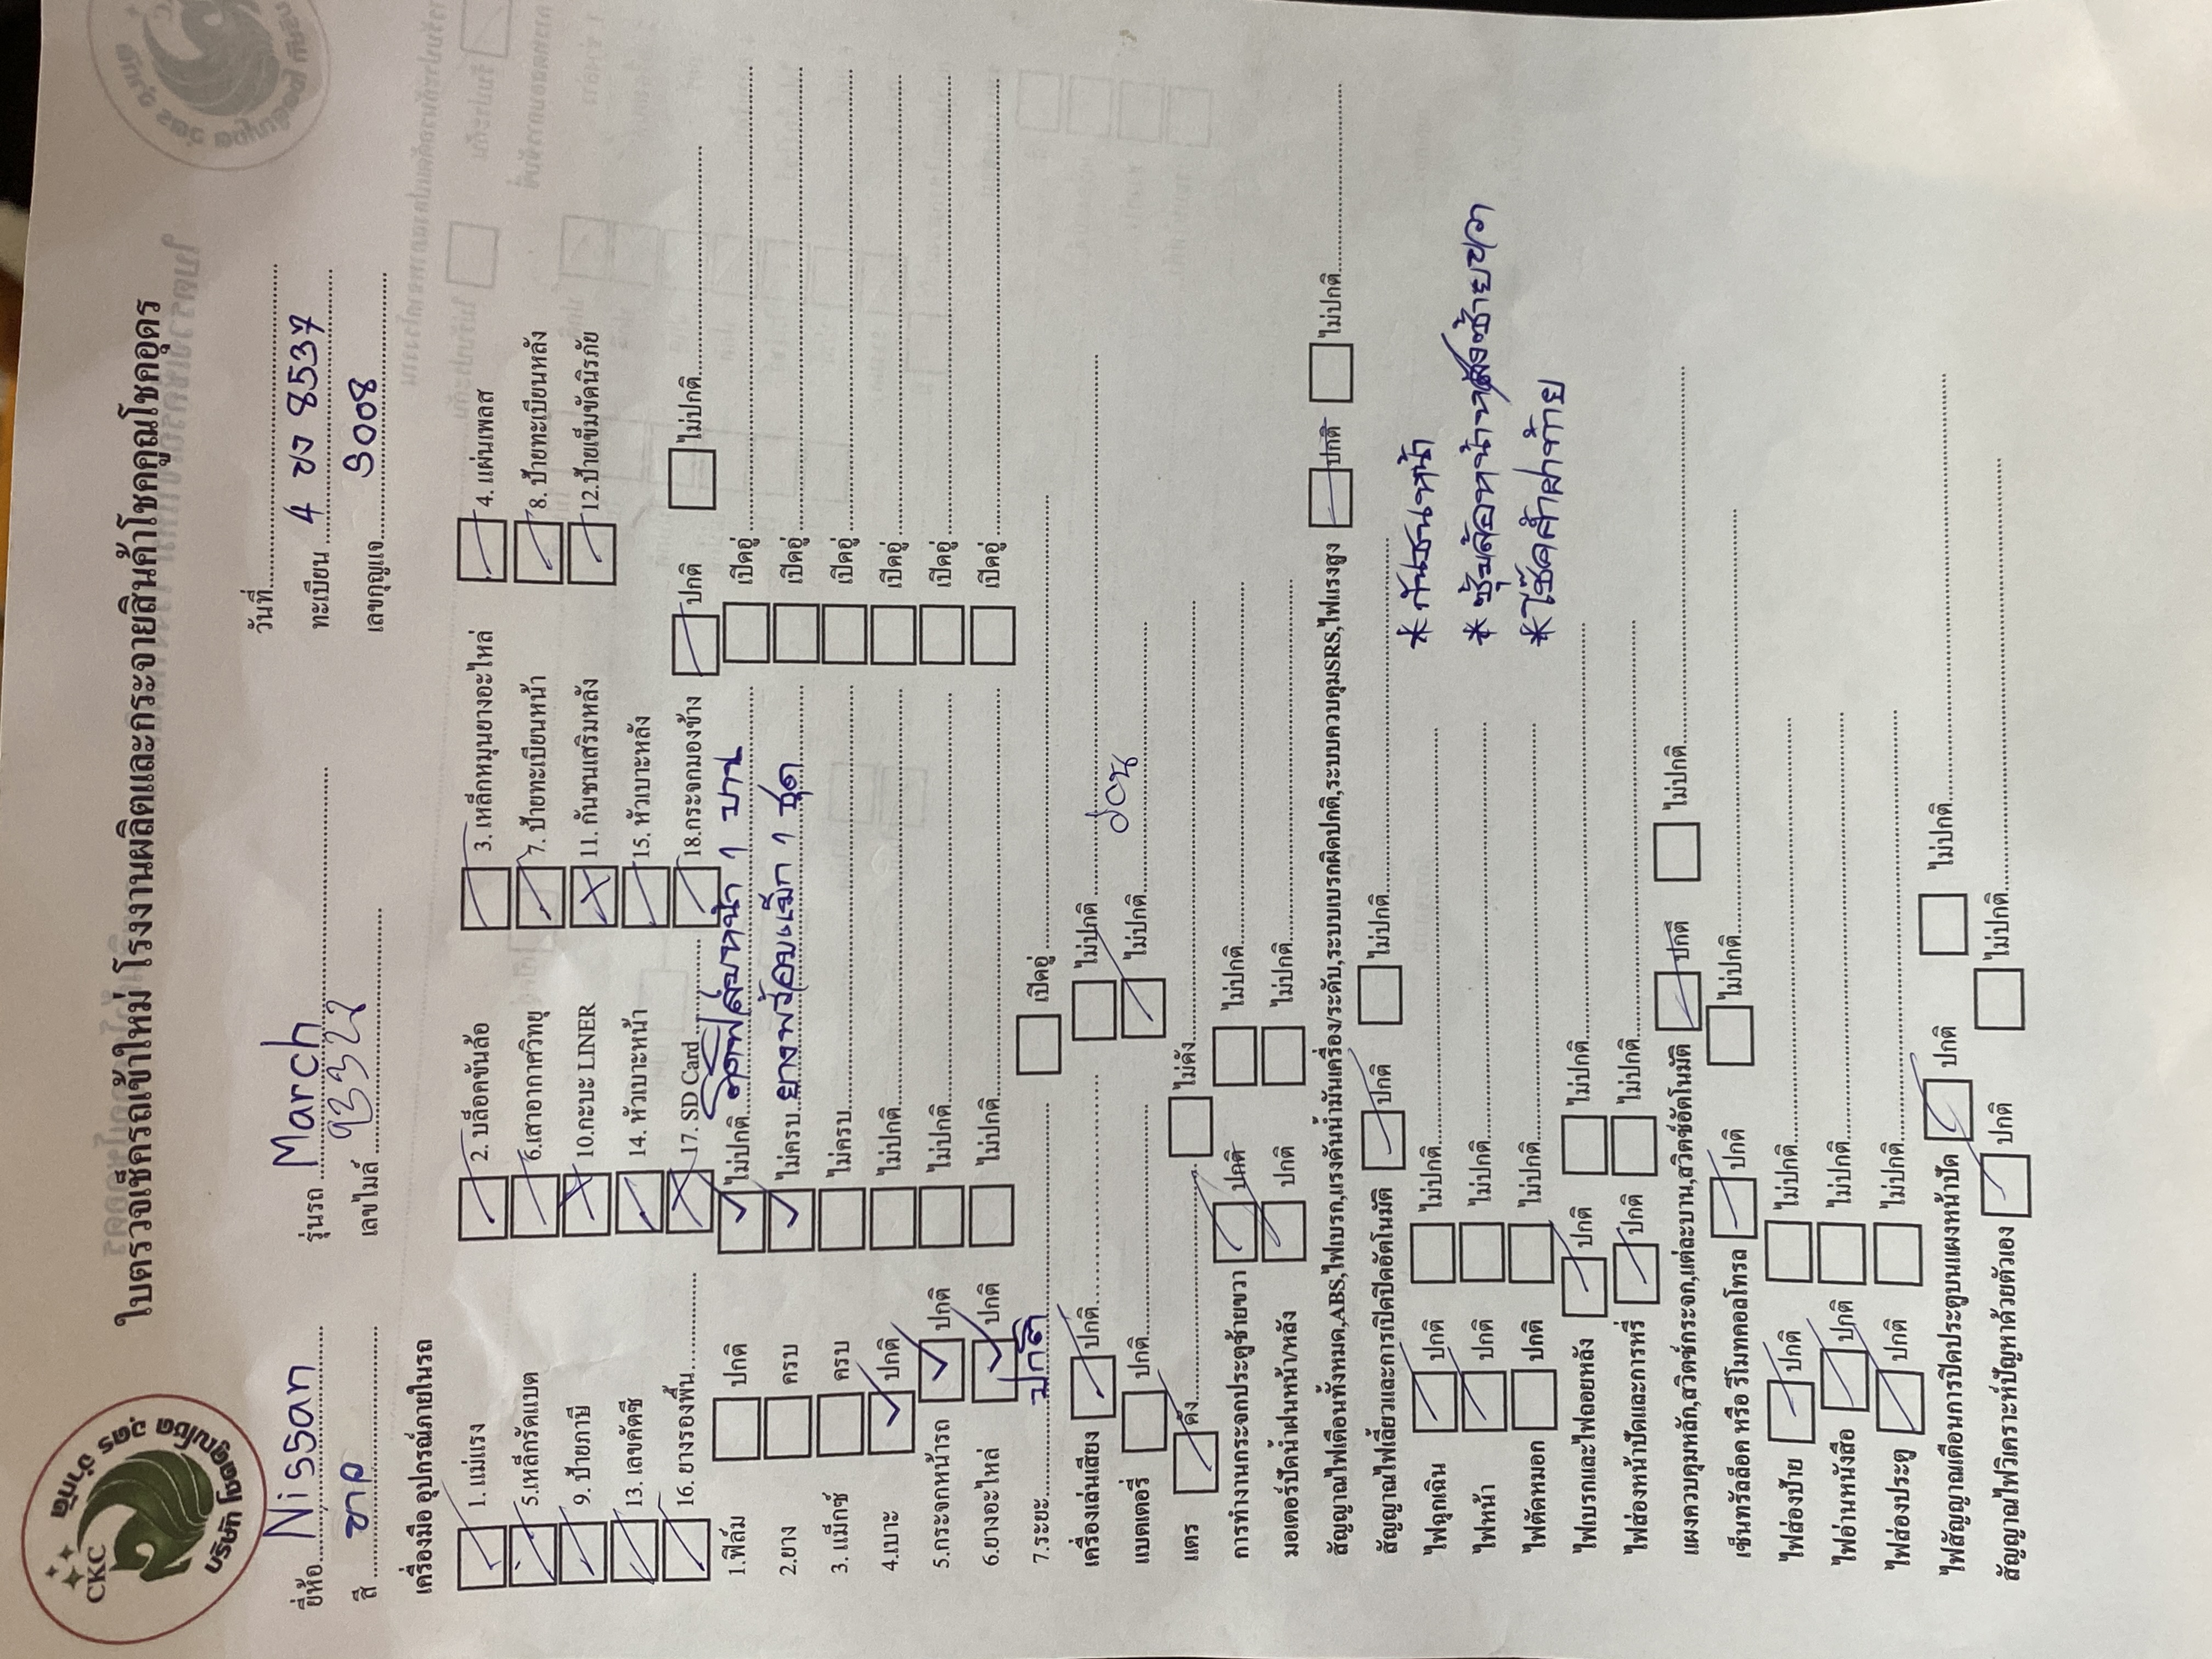 CKC
บริษัท โชคคูณโชค อุดร จำกัด
ใบตรวจเช็ครถเข้าใหม่ โรงงานผลิตและกระจายสินค้าโชคคูณโชคอุดร
ยี่ห้อ Nissan รุ่นรถ March วันที่
ทะเบียน 4 ขง 8537
สี ขาว เลขไมล์ เลขกุญแจ S008
เครื่องมือ อุปกรณ์ภายในรถ
1. แม่แรง 2. บล็อคขันล้อ 3. เหล็กหมุนยางอะไหล่ 4. แผ่นเพลส
5.เหล็กรัดแบต 6.เสาอากาศวิทยุ 7. ป้ายทะเบียนหน้า 8. ป้ายทะเบียนหลัง
9. ป้ายภาษี 10.กะบะ LINER 11. กันชนเสริมหลัง 12.ป้ายเข็มขัดนิรภัย
13. เลขคัตซี 14. หัวเบาะหน้า 15. หัวเบาะหลัง
16. ยางรองพื้น 17. SD Card 18.กระจกมองข้าง ปกติ ไม่ปกติ
1.ฟิล์ม ปกติ ไม่ปกติ ติดฟิล์มบานหน้า 1 บาน เปิดอู่
2.ยาง ครบ ไม่ครบ ยางพร้อมแม็ก 1 ชุด เปิดอู่
3. แม็กซ์ ครบ ไม่ครบ เปิดอู่
4.เบาะ ปกติ ไม่ปกติ เปิดอู่
5.กระจกหน้ารถ ปกติ ไม่ปกติ เปิดอู่
6.ยางอะไหล่ ปกติ ไม่ปกติ เปิดอู่
7.ระยะ ปกติ เปิดอู่
เครื่องเล่นเสียง ปกติ ไม่ปกติ
แบตเตอรี่ ปกติ ไม่ปกติ อ่อน
แตร ดัง ไม่ดัง
การทำงานกระจกประตูซ้ายขวา ปกติ ไม่ปกติ
มอเตอร์ปัดน้ำฝนหน้า/หลัง ปกติ ไม่ปกติ
สัญญาณไฟเตือนทั้งหมด,ABS,ไฟเบรก,แรงดันน้ำมันเครื่อง/ระดับ,ระบบเบรกผิดปกติ,ระบบควบคุมSRS,ไฟแรงสูง ปกติ ไม่ปกติ
สัญญาณไฟเลี้ยวและการเปิดปิดอัตโนมัติ ปกติ ไม่ปกติ
ไฟฉุกเฉิน ปกติ ไม่ปกติ * กันชนหน้า
ไฟหน้า ปกติ ไม่ปกติ * ซุ้มล้อหน้า ซ้ายขวา
ไฟตัดหมอก ปกติ ไม่ปกติ * โช๊คค้ำฝาท้าย
ไฟเบรกและไฟถอยหลัง ปกติ ไม่ปกติ
ไฟส่องหน้าปัดและการหรี่ ปกติ ไม่ปกติ
แผงควบคุมหลัก,สวิตช์กระจก,แต่ละบาน,สวิตช์อัตโนมัติ ปกติ ไม่ปกติ
เซ็นทรัลล็อค หรือ รีโมทคอลโทรล ปกติ ไม่ปกติ
ไฟส่องป้าย ปกติ ไม่ปกติ
ไฟอ่านหนังสือ ปกติ ไม่ปกติ
ไฟส่องประตู ปกติ ไม่ปกติ
ไฟสัญญาณเตือนการปิดประตูบนแผงหน้าปัด ปกติ ไม่ปกติ
สัญญาณไฟวิเคราะห์ปัญหาด้วยตัวเอง ปกติ ไม่ปกติ